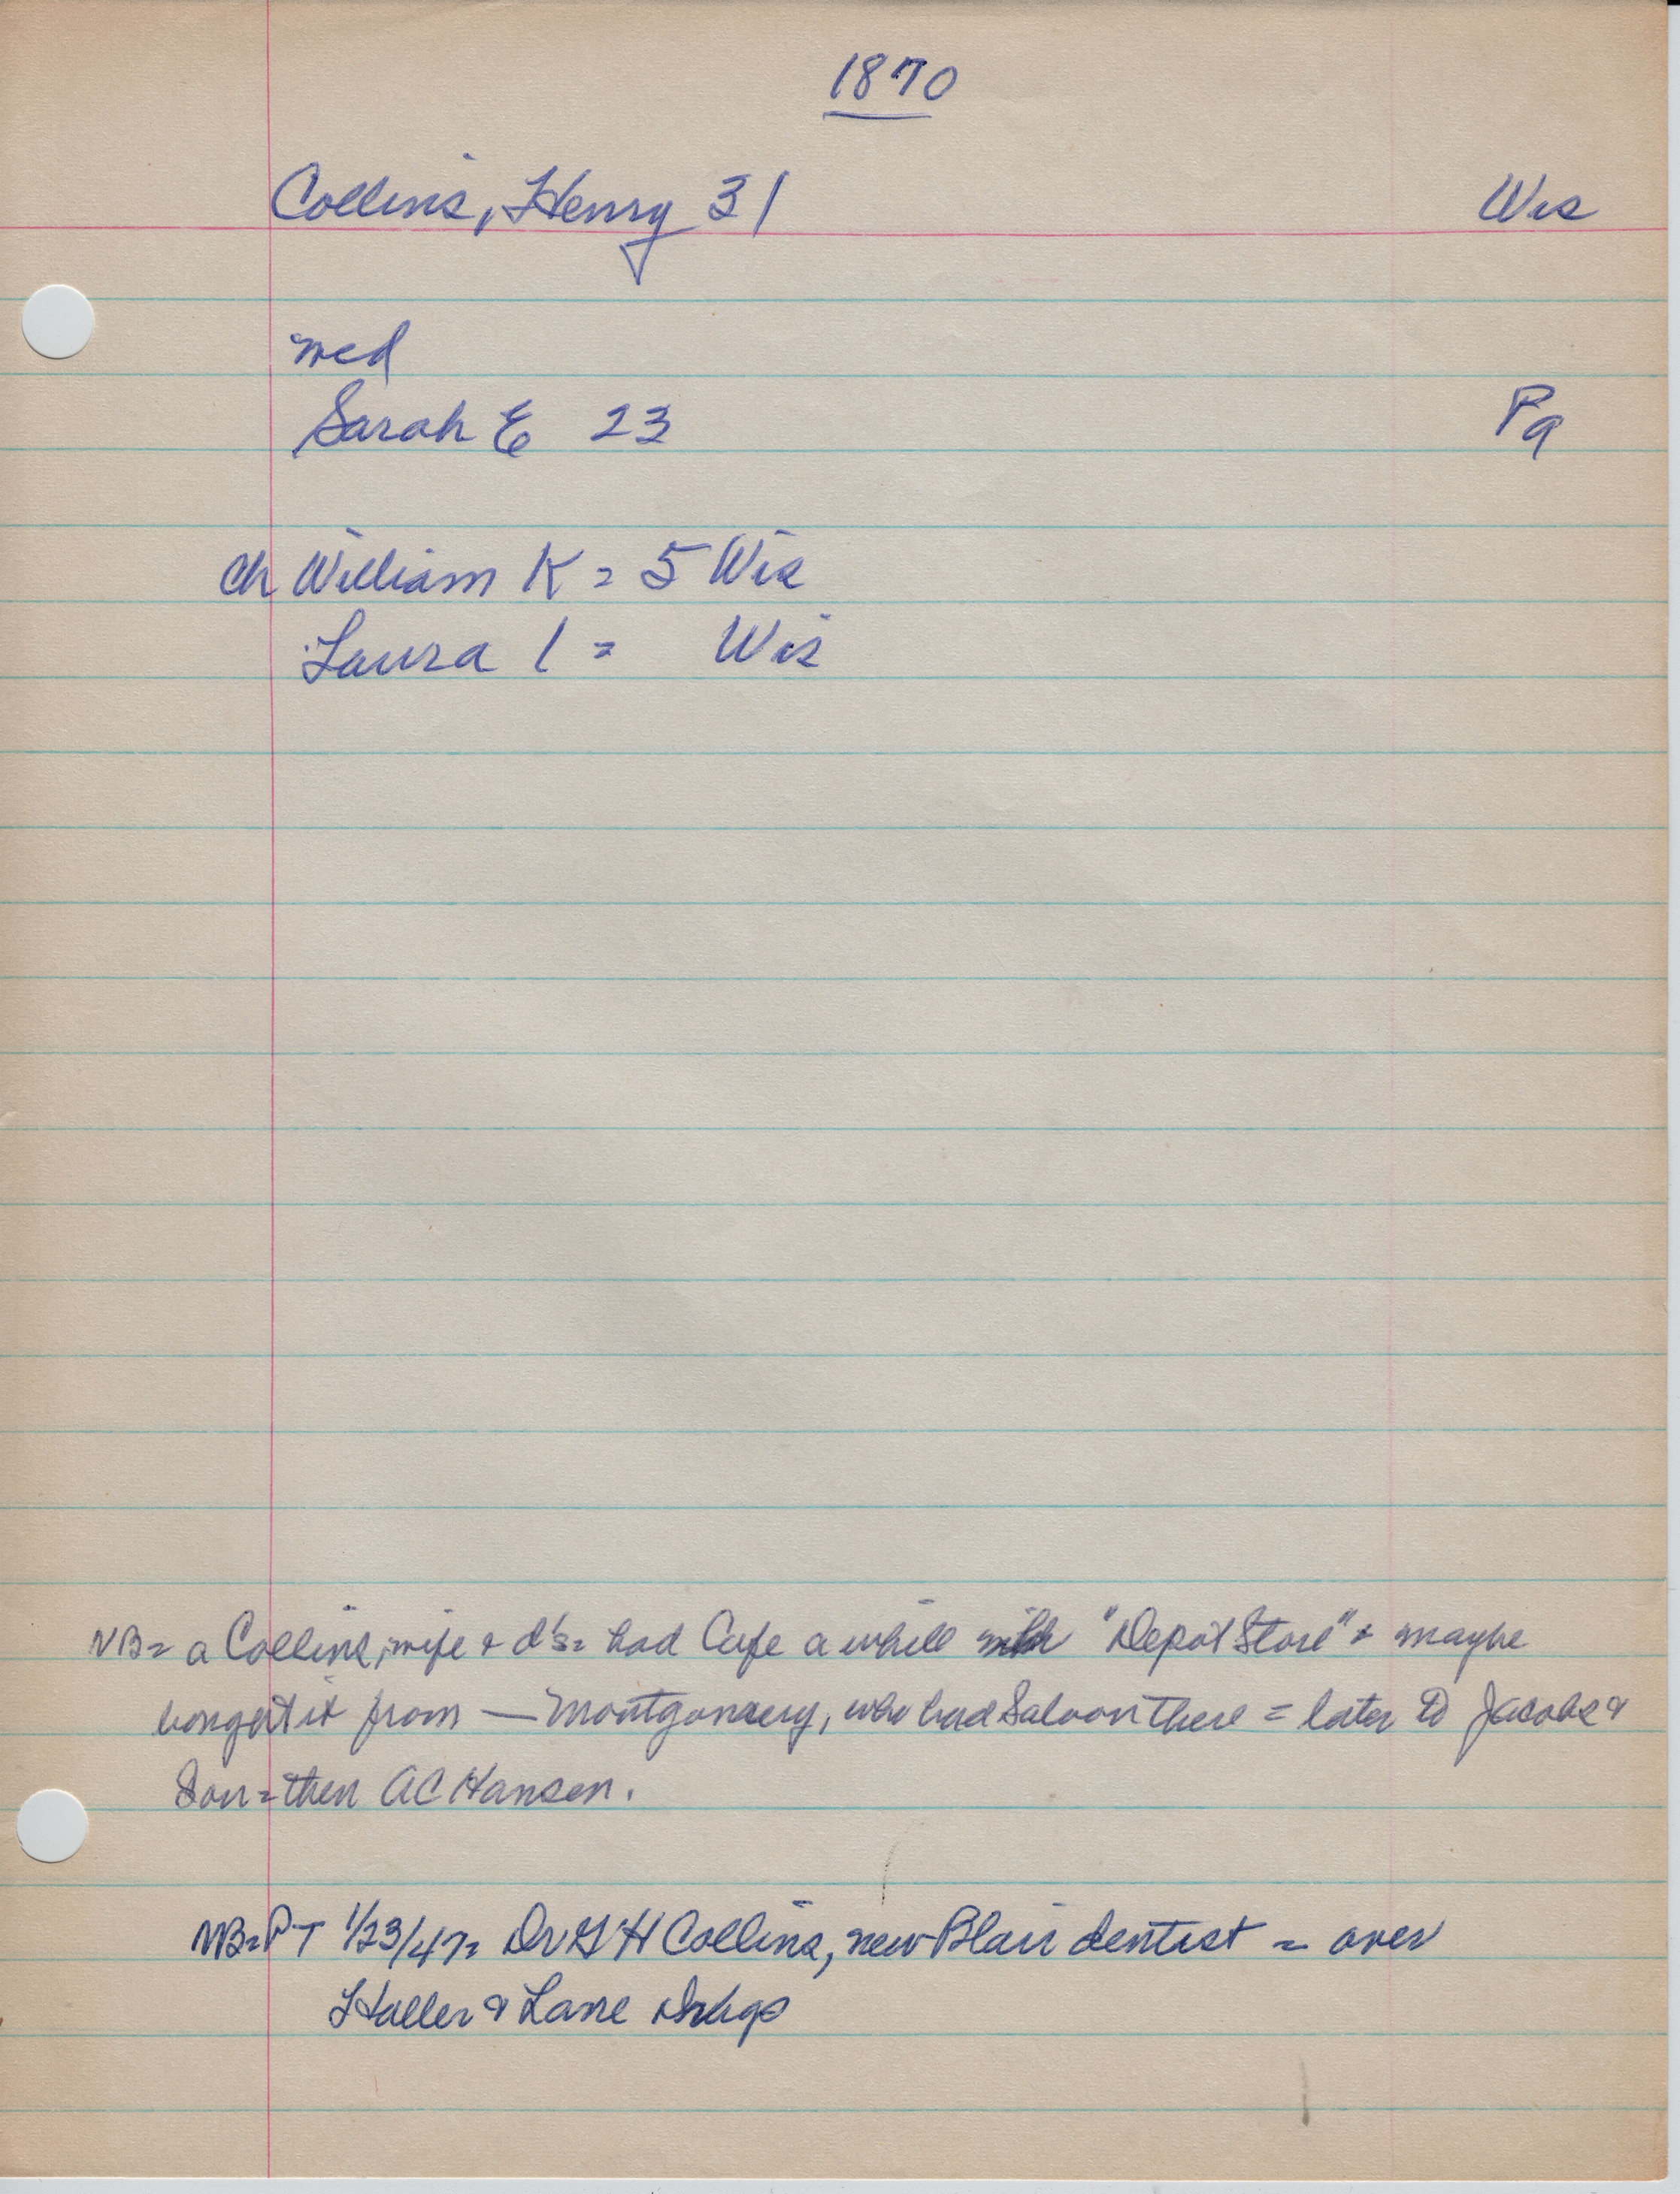 1870
Collins, Henry 31 Wis
med
Sarah E 23 Pa
ch William K = 5 Wis
Laura 1 = Wis
NB = a Collins, wife + d's = had Cafe a while "Depot Store" + maybe
it from — Montgomery, who had Saloon there = later to Jacobs &
Son = then AC Hansen.
NB = PT 1/23/47 = Dr G H Collins, new Blair dentist = over
Haller & Lane Drugs